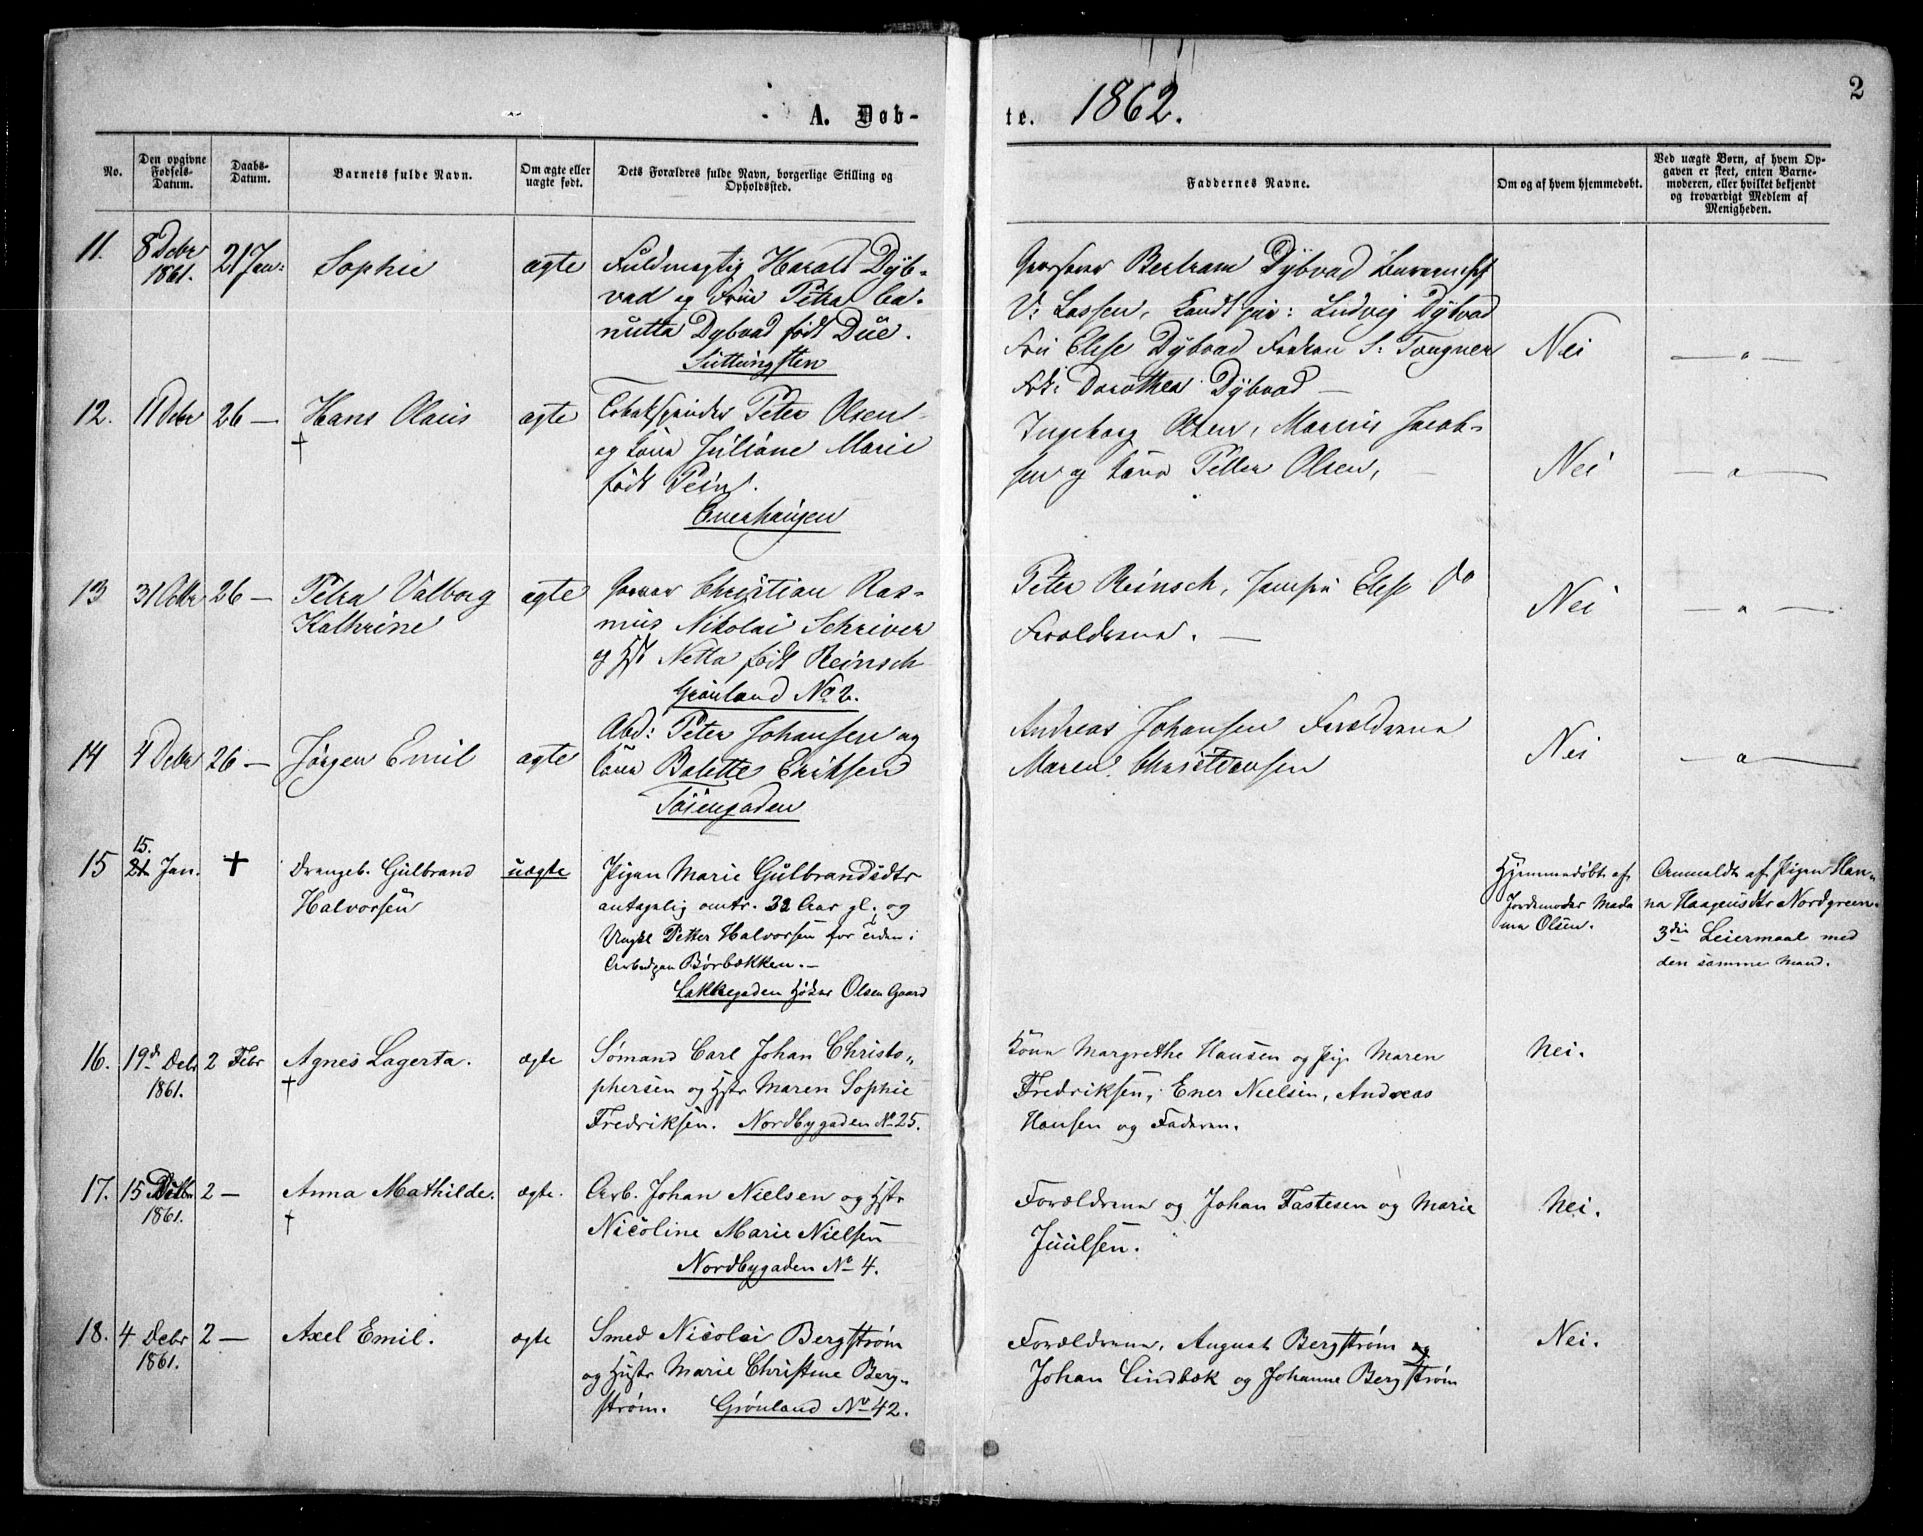 2
A. Døb-
te. 1862.
No.
Den opgivne Fødsels-Datum.
Daabs-Datum.
Barnets fulde Navn.
Om ægte eller uægte født.
Dets Forældres fulde Navn, borgerlige Stilling og Opholdssted.
Faddernes Navne.
Om og af hvem hjemmedøbt.
Ved uægte Børn, af hvem Opgaven er skeet, enten Barnemoderen, eller hvilket bekjendt og troværdigt Medlem af Menigheden.
11. 8 Debr 1861. 21 Jan: Sophie ægte
Fuldmægtig Harald Dÿb-
vad og Frue Petra Ca-
nutta Dybvad født Düe.
Bertram Dÿbvad
V: Lassen, Ludvig Dÿbvad
Elise Dÿbvad S: Tougner
Frk: Dorothea Dÿbvad —
Nei
— " —
12. 11 Debr 26 — Hans Olaus † ægte
Peter Olsen
og Kona Juliane Marie
født
Enerhaugen
Ingeborg Olsen, Marius Jacob-
sen og Kona Petter Olsen, —
Nei
— " —
13 31 Octbr 26 — Petra Valborg
Kathrine
ægte
Christian Ras-
mus Nikolai Schriver
og Hst Netta født Reinsch
Grønland No 2.
Peter Reinsch, Jomfru Elise Do
Forældrene. —
Nei
— " —
14 4 Debr 26 — Jørgen Emil ægte
Abd: Peter Johansen og
Kona Balette Eriksen
Tøiengaden
Andreas Johansen Forældrene
Maren Christensen
Nei
— " —
15 15. 21 Jan. † Drengeb. Gulbrand
Halvorsen
uægte
Pigen Marie Gulbrandsdtr
antagelig omtr. 32 Aar gl. og
Ungkl Petter Halvorsen for Tiden i
Børbækken. —
Lakkegaden Høker Olsen Gaard
Hjemmedøbt af
Jordemoder Mada
me Olsen.
Anmeldt af Pigen Han-
na Haagensdtr Nordgreen
3die Leiermaal med
den samme Mand.
16. 19d Debr 1861. 2 Febr Agnes Lagerta. † ægte
Sømand Carl Johan Christo-
phersen og Hstr Maren Sophie
Fredriksen. Nordbygaden No 25.
Kona Margrethe Hansen og Pige Maren
Fredriksen, Ener Nielsen, Andreas
Hansen og Faderen.
Nei.
17. 15 1861. 2 — Anna Mathilde. † ægte.
Arb. Johan Nielsen og Hstr
Nicoline Marie Nielsen
Nordbygaden No 4.
Forældrene og Johan Fastesen og Marie
Juulsen.
Nei.
18. 4 Debr 1861. 2 — Axel Emil. ægte
Smed Nicolai Bergstrøm
og Hustr Marie Christine Berg-
strøm. Grønland No 42.
Forældrene, August Bergstrøm og
Johan Lindbæk og Johanne Bergstrøm
Nei.